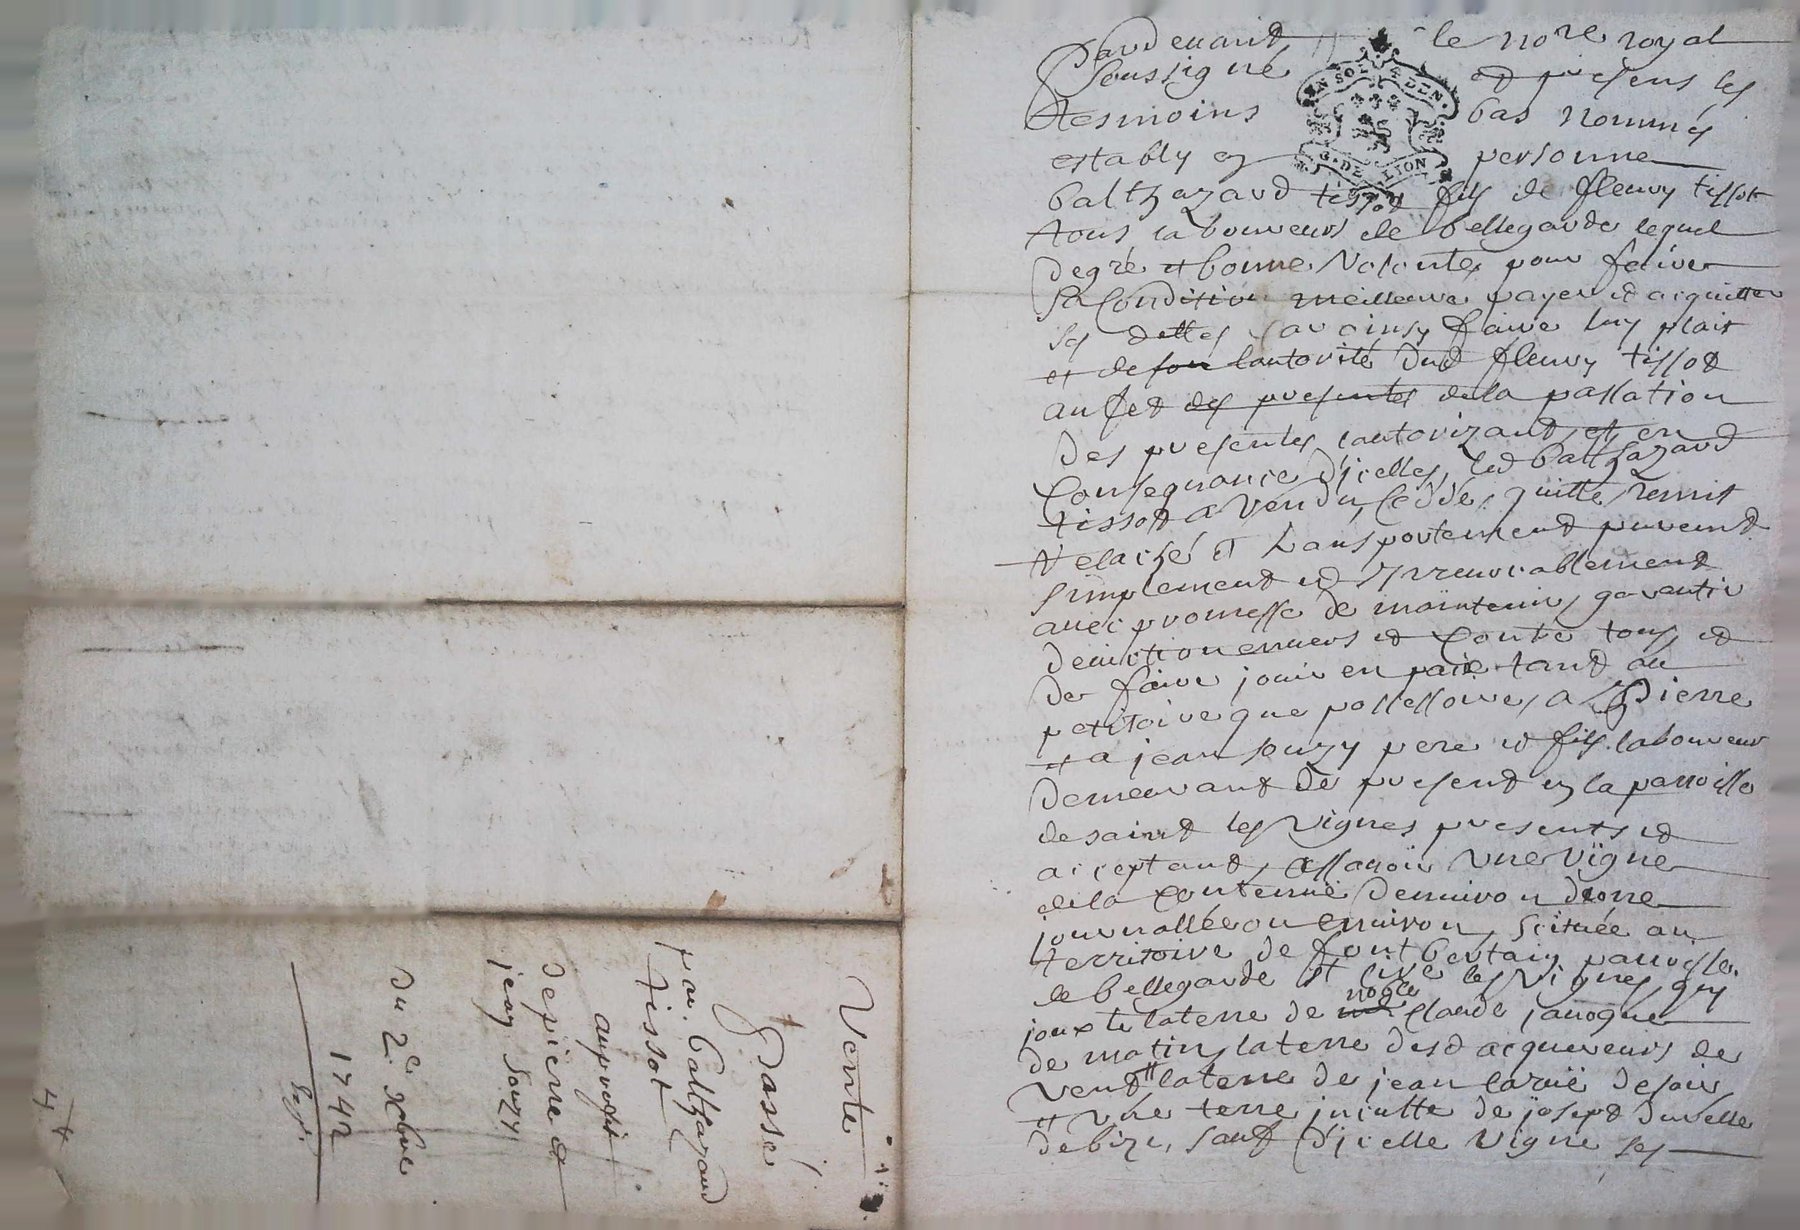 Vente
Passé
par balthazard
tissot
au proffit
de pierre et
jean Souzy
du 2e xbre
1742
Pardevant le nore royal
soussigné et presens les
tesmoins bas nommés
estably en personne
UN SOL 4 DEN
G. DE LION
balthazard tissot fils de fleury tissot
tous laboureurs de bellegarde lequel
de gré et bonne volonté pour faire
sa condition meilleure payer et acquitter
ses dettes car ainsy faire luy plait
et de son lautorité dud fleury tissot
au fet des presentes de la passation
des presentes lautorizant et en
consequance d'jcelles led balthazard
tissot a vendu, ceddé, quitté, remis
relaché et transportement purement
simplement et yrrevocablement
avec promesse de maintenir, garentir
deviction envers et contre tous et
de faire jouir en paix tant au
petitoire que possessoire, a Pierre
et a jean souzy pere et fils laboureur
demeurant de present en la parroisse
de saint les vignes presents et
acceptant, assavoir une vigne
de la contenue denviron d'une
journallée ou environ, scituée au
territoire de font bertain parroisse
de bellegarde et les vignes, qui
jouxte la terre de noble Claude janogue
de matin, la terre desd acquereurs de
vent la terre de jean larüe de soir
et une terre jnculte de joseph duvelle
de bize, sauf d'jcelle vigne ses